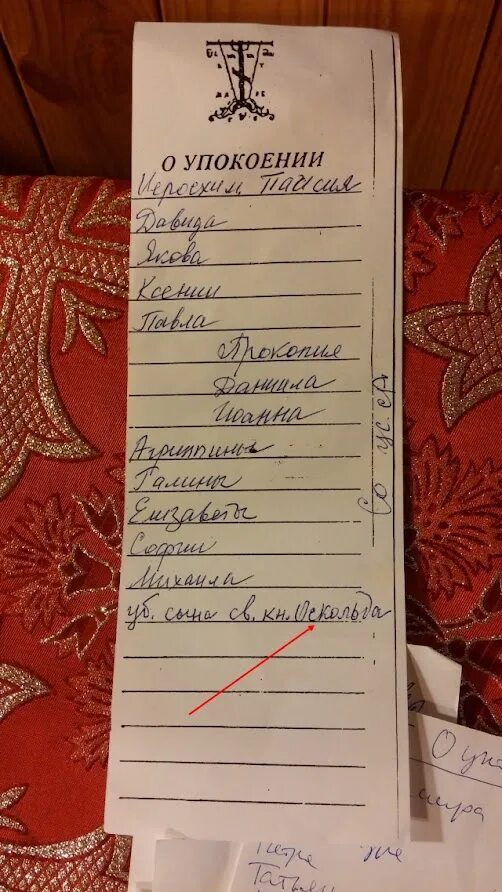 О УПОКОЕНИИ
Иеросхим Паисия
Давида
Якова
Ксении
Павла
Прокопия
Даниила
Иоанна
Агриппины
Галины
Елизаветы
Софии
Михаила
уб. сына св. кн. Оскольда
Со ус. ср.
О уп
Татьян